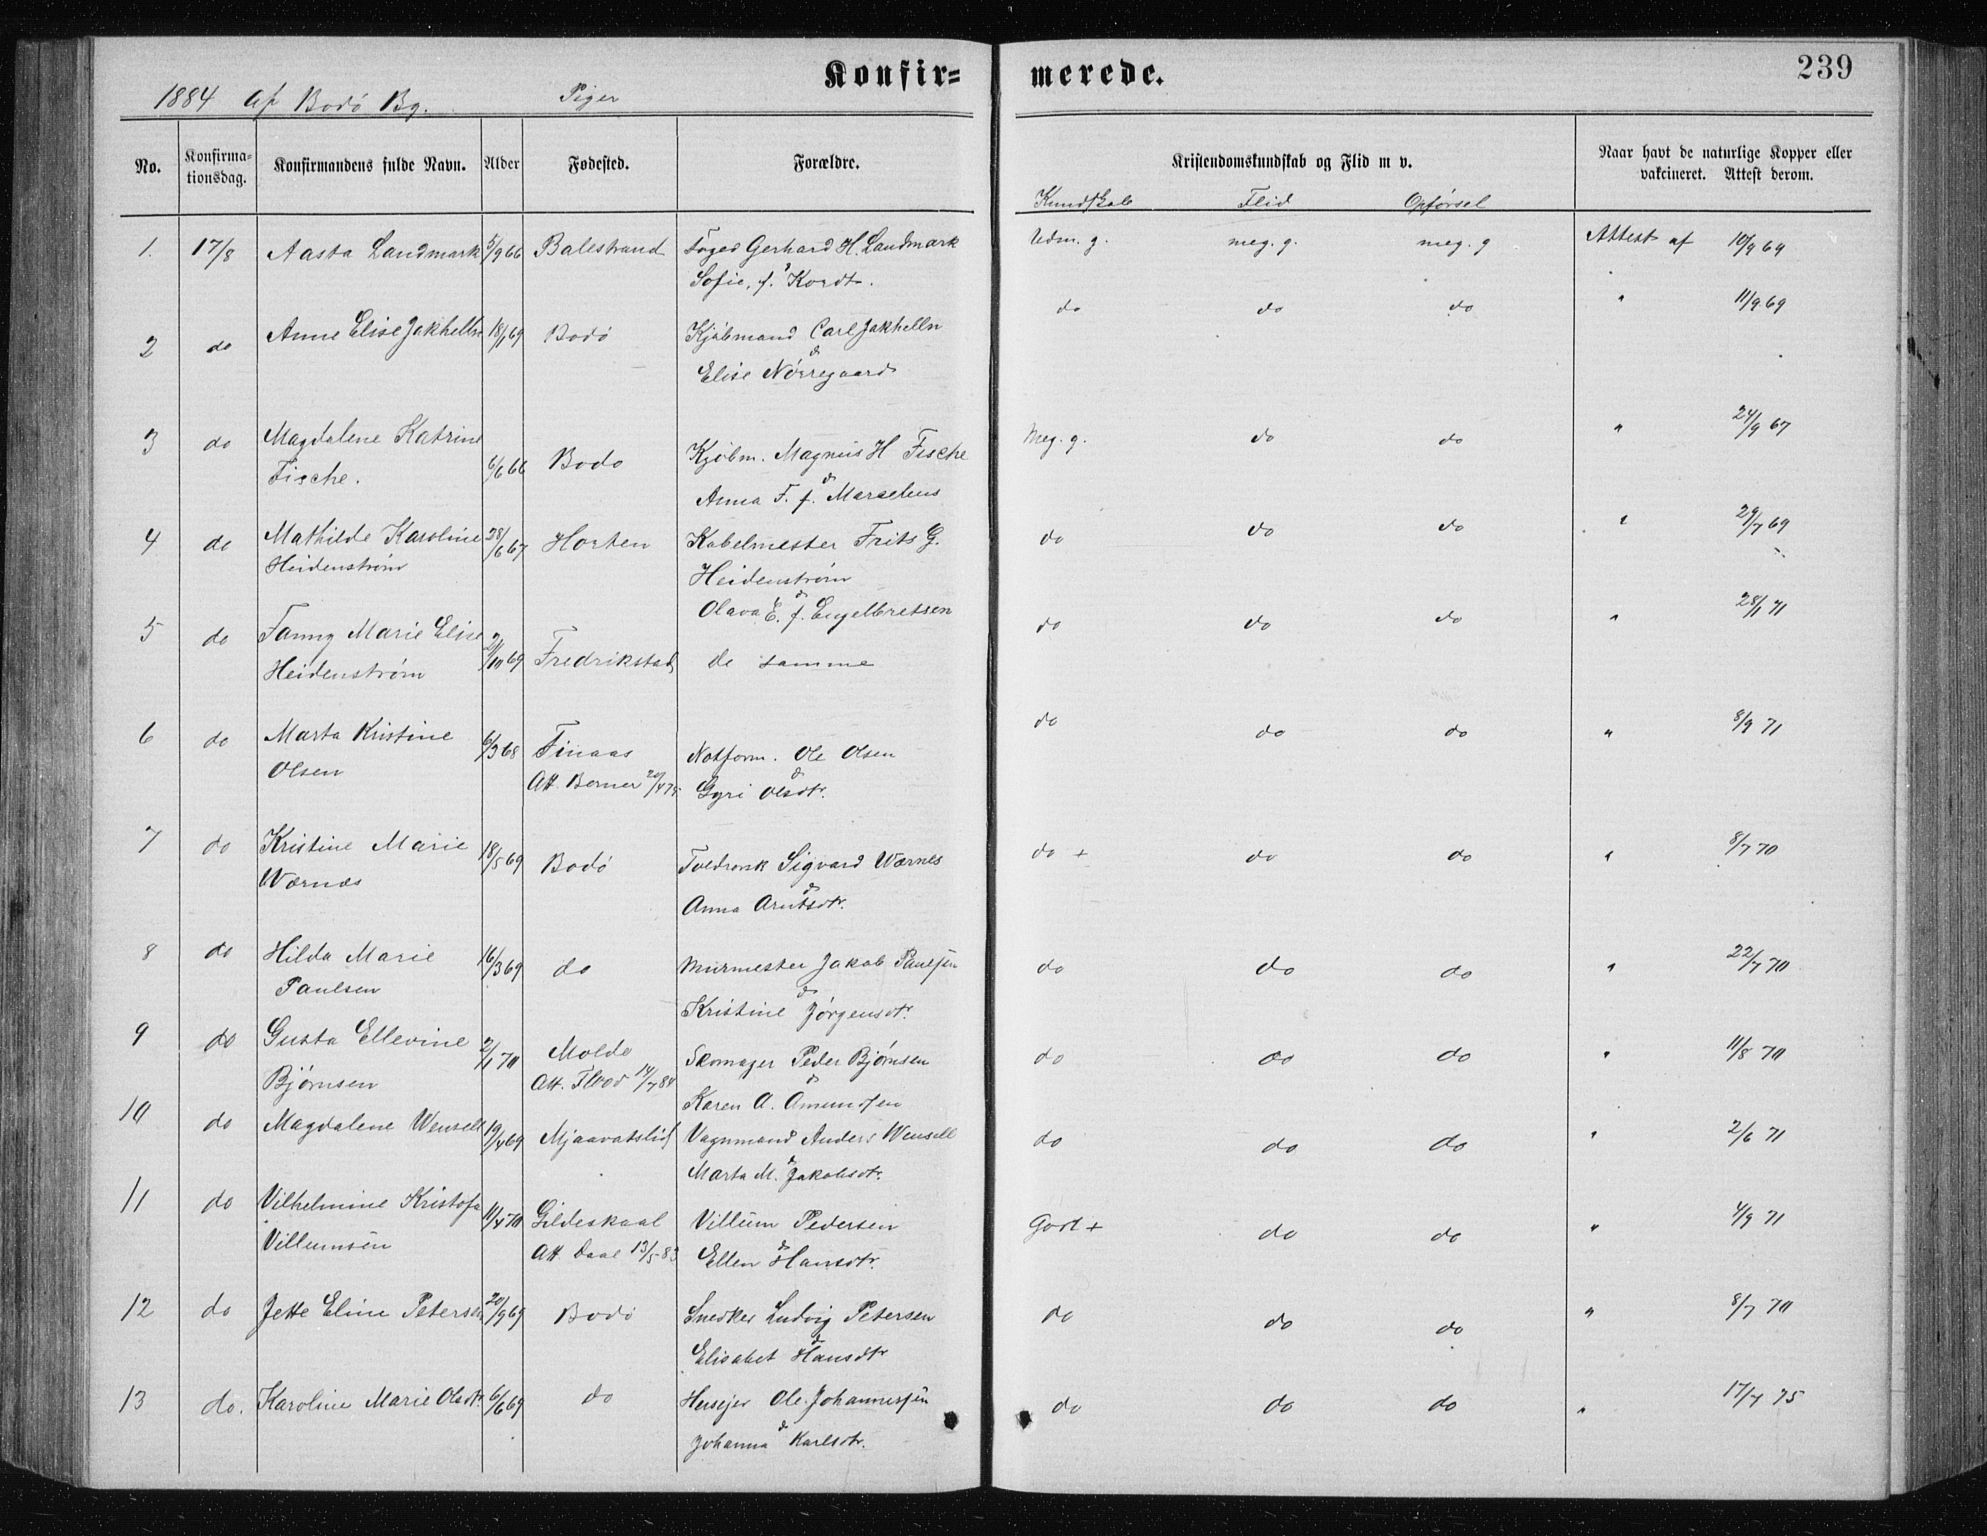 Konfir=
merede.
239
1884 Af Bodö By. Piger
No.
Konfirma-
tionsdag.
Konfirmandens fulde Navn.
Alder
Fødested.
Forældre.
Kristendomskundskab og Flid m v.
Naar havt de naturlige Kopper eller
vakcineret. Attest derom.
Kundskab Flid Opførsel
1. 17/8 Aasta Landmark 5/9 66 Balestrand Foged Gerhard H. Landmark Udm. g. meg. g. meg. g Attest af 10/9 69
Sofie, f. Kordt.
2 do Anne Elise Jakhelln 18/1 69 Bodö Kjöbmand Carl Jakhelln do do do " 11/9 69
Elise Nörregaard
3 do Magdalene Katrine 6/6 66 Bodo Kjöbm. Magnus H Fische Meg. g. do do " 24/9 67
Fische. Anna F. f.
4 do Mathilde Karoline 28/6 67 Horten Kabelmester Frits G. do do do " 29/7 69
Heidenström Heidenström
Olava E. f. Engelbretsen
5 do Fanny Marie Elise 2/10 69 Fredrikstad de samme do do do " 28/1 71
Heidenström
6 do Marta Kristine 6/3 68 Finaas Notform. Ole Olsen do do do " 8/9 71
Olsen Att. Berner 20/4 75 Gyri Olsdtr.
7 do Kristine Marie 18/5 69 Bodö Sigvard Værnes do + do do " 8/7 70
Værnæs Anna Arntsdtr.
8 do Hilda Marie 16/3 69 do Murmester Jakob Paulsen do do do " 22/7 70
Paulsen Kristine Jørgensdtr.
9 do Gusta Ellevine 2/1 70 Molde Skomager Peder Bjørnsen do do do " 11/8 70
Bjørnsen Att. Flood 14/7 84 Karen A. Amundsen
10 do Magdalene Wensell 19/4 69 Mjaavatslid Vognmand Anders Wensell do do do " 2/6 71
Marta M. Jakobsdtr.
11 do Vilhelmine Kristofa 11/4 70 Gildeskaal Villum Pedersen Godt + do do " 4/9 71
Villumsen Att Daae 13/5 83 Ellen Hansdtr.
12 do Jette Eline Petersen 20/9 69 Bodö Snedker Ludvig Petersen do do do " 8/7 70
Elisabet Hansdtr
13 do. Karoline Marie Olsdtr. 6/6 69 do Husejer Ole Johannessen do do do " 17/7 75
Johanna Karlsdtr.